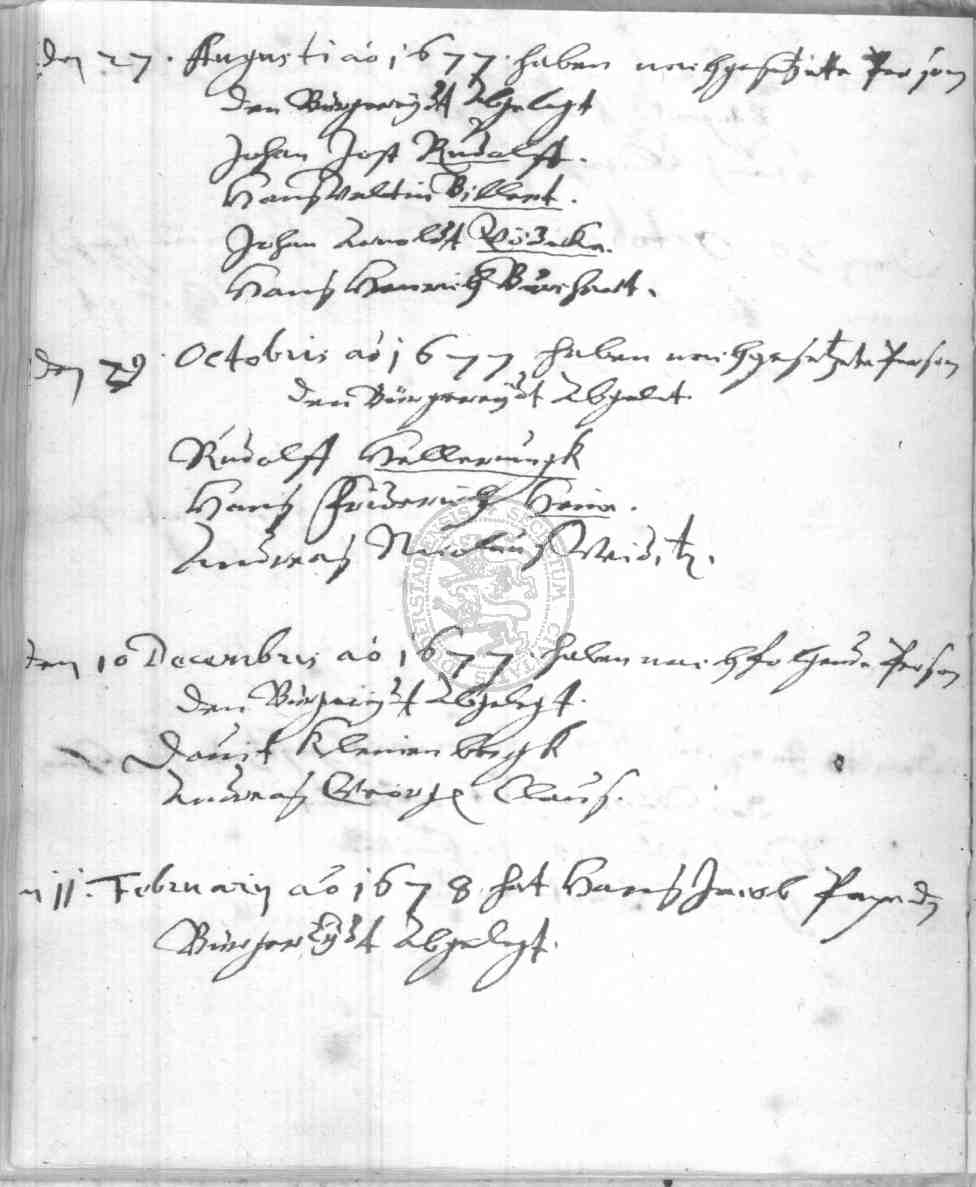 den 27. Augusti aõ 1677. haben nachgesetzte Person
den Bürgereydt Abgelegt
Johan Jost Rudolff.
Hanß Valtin Billert.
Johan Arnoldt
Hanß Henrich Burchart.
den 29 Octobris aõ 1677, haben nachgesetzete Person
den Bürgereydt Abgelet
Rudolff Hellerungk
Hanß Friderich Hein.
Andreaß Nicolauß
den 10 Decembris aõ 1677. haben nachfolgende Person
den Bürgereydt Abgelegt.
Davit Klemenbergk
Andreaß Geörge Clauß.
11. February aõ 1678. hat Hanß Jacob Pape dz
Bürgereydt Abgelegt.